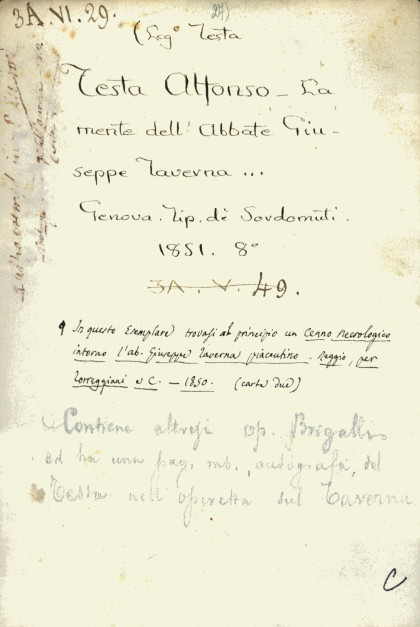 3A. VI. 29.
27)
(Leg. Testa
Testa Alfonso – La
mente dell' Abbate Giu-
seppe Taverna ...
Genova. Tip. de' Sordomuti.
1851. 8°
3A. V. 49.
In questo Esemplare trovasi al principio un Cenno Necrologico
intorno l'ab. Giuseppe Taverna piacentino. Reggio, per
Torreggiani e C. – 1850. (carte due)
Contiene altresì op. Brigalli
ed ha una pag. ms., autografa, del
Testa nell'operetta sul Taverna
C